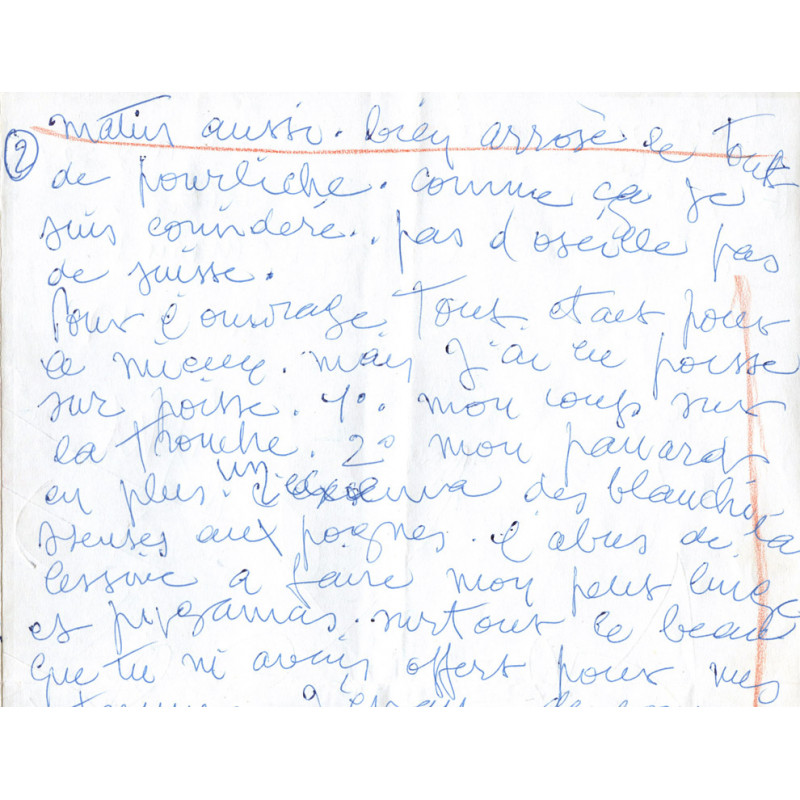 ② matin aussi. bien arrosé le tout
de pourliche. comme ça je
suis considéré. pas d'oseille pas
de suisse.
Pour l'ouvrage Tout était pour
le mieux. mais j'ai eu poisse
sur poisse. 1°. mon coup sur
la tronche. 2° mon panard
en plus. un eczema des blanchis
seuses aux poignes. l'abus de la
lessive a faire mon petit linge
et pyjamas. surtout le beau
que tu m'avais offert pour mes